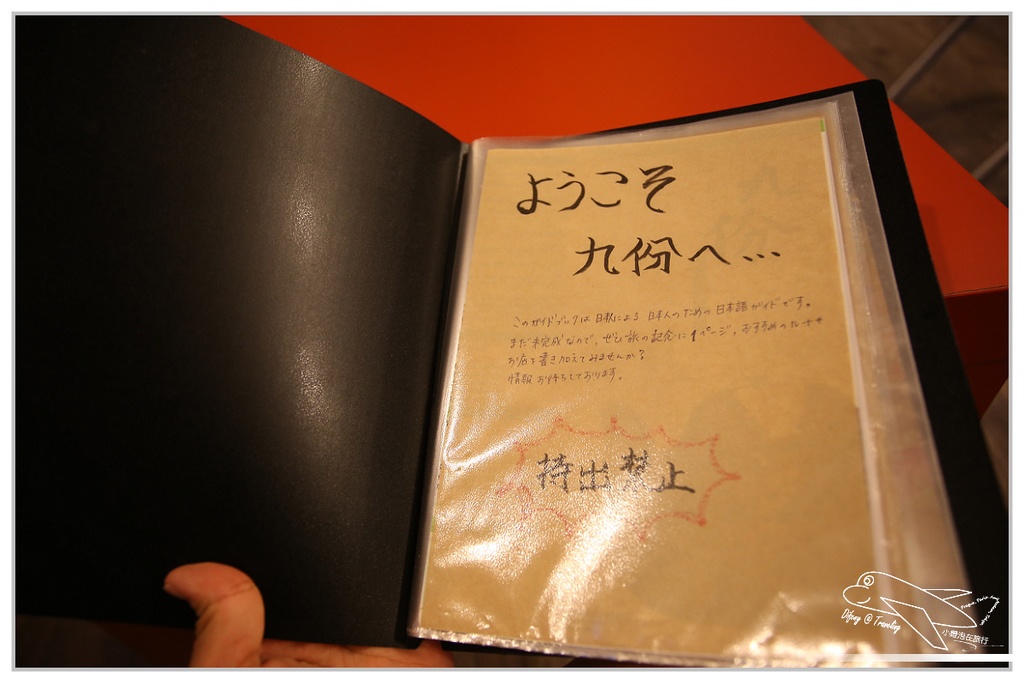 ようこそ
九份へ...
このガイドブックは 日本人による 日本人のための 日本語ガイドです。
まだ未完成なので、ぜひ旅の記念に1ページ、おすすめの
お店を書き加えてみませんか?
情報お待ちしております。
持出禁止
Difeny @ Traveling
小燈泡在旅行